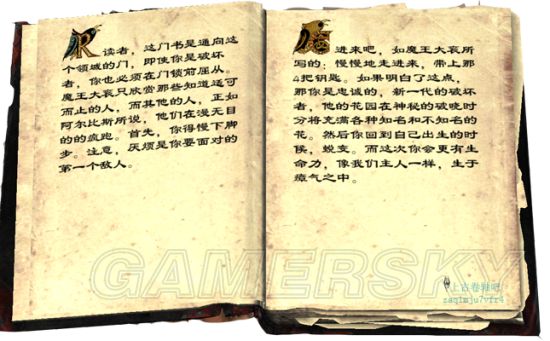 R
读者，这门书是通向这
个领域的门，即使你是破坏
者，你也必须在门锁前屈从。
魔王大衮只欣赏那些知道适可
而止的人，而其他的人，正如
阿尔比斯所说，他们在漫无目
的的疯跑。首先，你得慢下脚
步。注意，厌烦是你要面对的
第一个敌人。
进来吧，如魔王大衮所
写的：慢慢地走进来，带上那
4把钥匙。如果明白了这点，
那你是忠诚的，新一代的破坏
者，他的花园在神秘的破晓时
分将充满各种知名和不知名的
花。然后你回到自己出生的时
候，蜕变。而这次你会更有生
命力，像我们主人一样，生于
瘴气之中。
GAMERSKY
上古卷轴吧
zaq1mju7vfr4